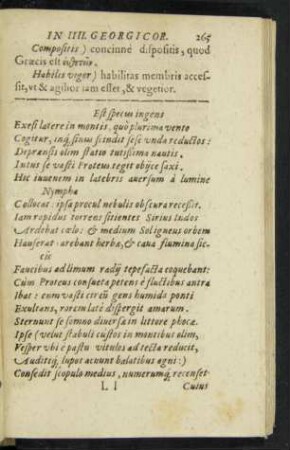 IN IIII. GEORGICOR. 265
Compositis) concinnè dispositis, quod
Græcis est
Habilis vigor) habilitas membris acces-
sit, vt & agilior iam esset, & vegetior.
Est specus ingens
Exesi latere in montis, quò plurima vento
Cogitur, inq́; sinus scindit sese vnda reductos:
Deprensis olim statio tutissima nautis,
Intus se vasti Proteus teget obijce saxi.
Hîc iuuenem in latebris auersum à lumine
Nympha
Collocat: ipsa procul nebulis obscura recessit.
Iam rapidus torrens sitientes Sirius Indos
Ardebat cælo: & medium Sol igneus orbem
Hauserat: arebant herbæ, & caua flumina sic-
cis
Faucibus ad limum radij tepefacta coquebant:
Cùm Proteus consueta petens è fluctibus antra
Ibat: eum vasti circũ gens humida ponti
Exultans, rorem latè dispergit amarum.
Sternunt se somno diuersa in littore phocæ.
Ipse (velut stabuli custos in montibus olim,
Vesper vbi è pastu vitulos ad tecta reducit,
Auditisq́; lupos acuunt balatibus agni:)
Consedit scopulo medius, numerumq́; recenset
L l Cuius